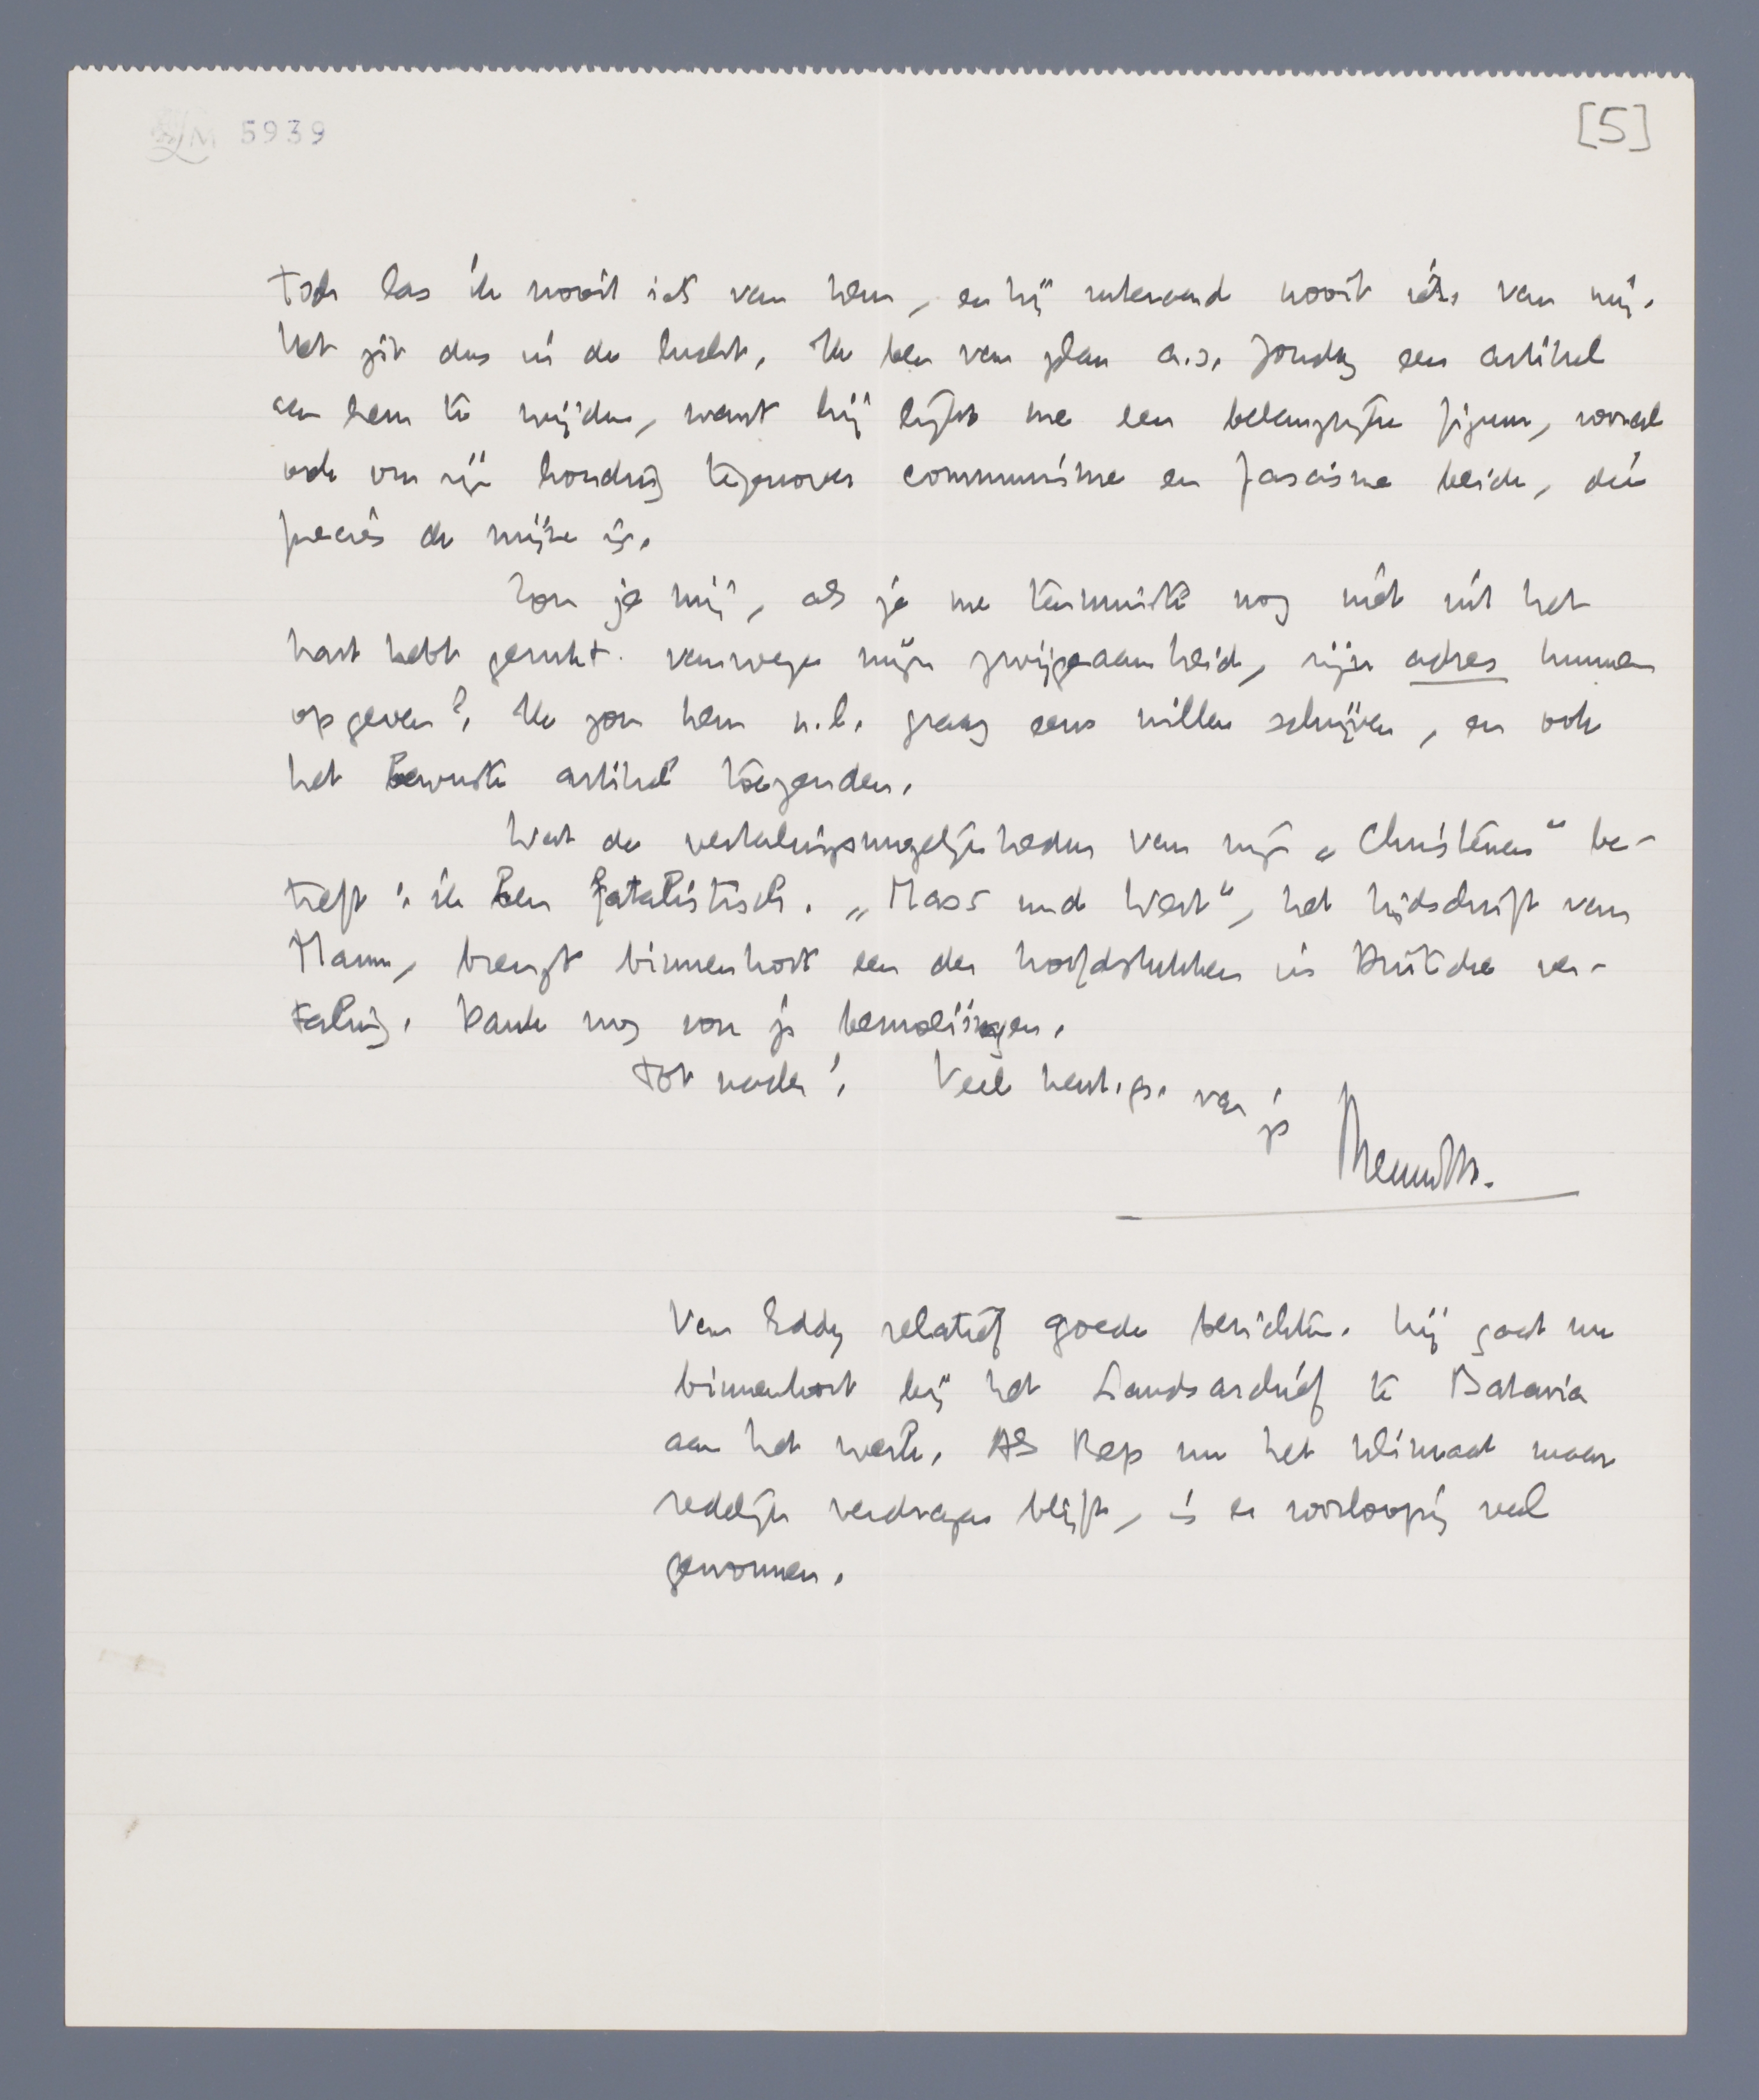 5939
[5]
Toch las ik nooit iets van hem, en hij uiteraard nooit iets van mij.
Het zit dus in de lucht. Ik ben van plan a.s. Zondag een artikel
aan hem te wijden, want hij lijkt me een belangrijke figuur, vooral
ook om zijn houding tegenover communisme en fascisme beide, die
precies de mijne is.
Zou je mij, als je me tenminste nog niet uit het
hart hebt gerukt vanwege mijn zwijgzaamheid, zijn adres kunnen
opgeven? Ik zou hem n.l. graag eens willen schrijven, en ook
het bewuste artikel toezenden.
Wat de vertalingsmogelijkheden van mijn „Christenen" be-
treft: ik ben fatalistisch. „Mass und Wert", het tijdschrift van
Mann, brengt binnenkort een der hoofdstukken in Duitsche ver-
taling. Dank nog voor je bemoeiingen.
Tot nader! Veel hart. gr. van je
Menno tB.
Van Eddy relatief goede berichten. Hij gaat nu
binnenkort bij het Landsarchief te Batavia
aan het werk. Als Bep nu het klimaat maar
redelijk verdragen blijft, is er voorloopig veel
gewonnen.